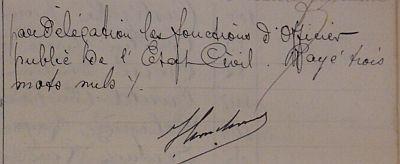 par délégation les fonctions d'Officier
public de l'Etat Civil. Rayé trois
mots nuls %.